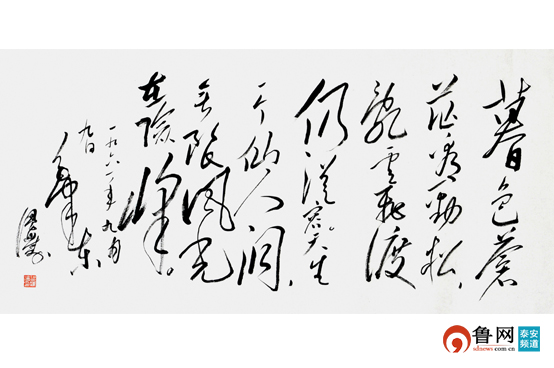 暮色蒼
茫看劲松，
乱雲飛渡
仍從容。天生
一个仙人洞，
无限风光
在險峰。
一九六一年九月
九日
毛泽东
鲁网
sdnews.com.cn
泰安
频道